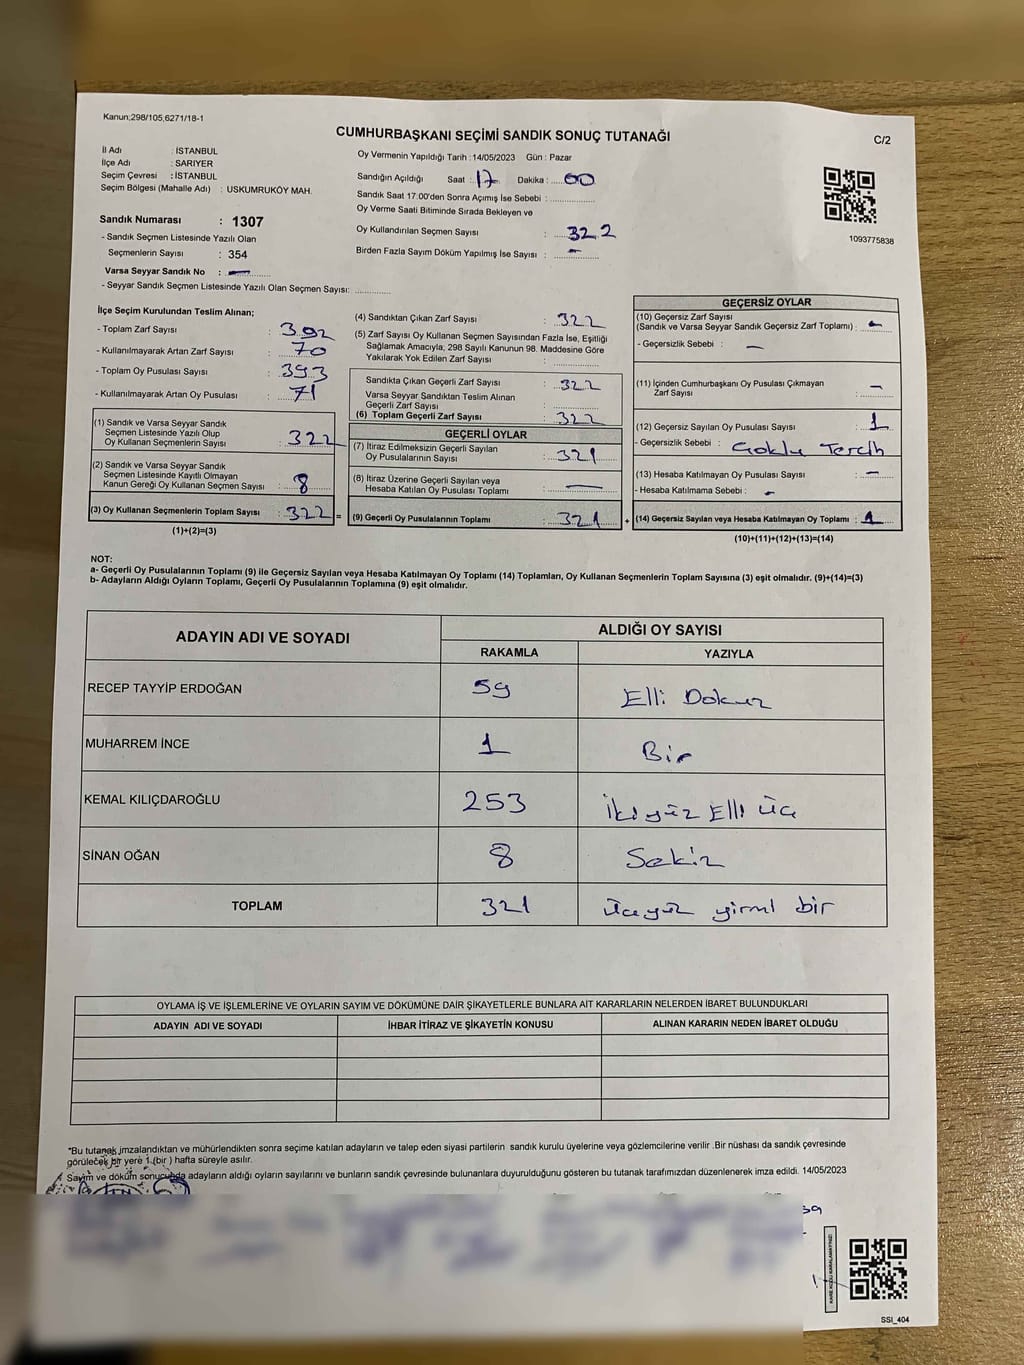 Kanun;298/105,6271/18-1
CUMHURBAŞKANI SEÇİMİ SANDIK SONUÇ TUTANAĞI
C/2
İl Adı : İSTANBUL
İlçe Adı : SARIYER
Seçim Çevresi : İSTANBUL
Seçim Bölgesi (Mahalle Adı) : USKUMRUKÖY MAH.
Sandık Numarası : 1307
- Sandık Seçmen Listesinde Yazılı Olan
Seçmenlerin Sayısı : 354
Varsa Seyyar Sandık No : —
- Seyyar Sandık Seçmen Listesinde Yazılı Olan Seçmen Sayısı:
Oy Vermenin Yapıldığı Tarih : 14/05/2023 Gün : Pazar
Sandığın Açıldığı Saat : 17 Dakika : 00
Sandık Saat 17:00'den Sonra Açımış İse Sebebi :
Oy Verme Saati Bitiminde Sırada Bekleyen ve
Oy Kullandırılan Seçmen Sayısı : 322
Birden Fazla Sayım Döküm Yapılmış İse Sayısı : —
1093775838
İlçe Seçim Kurulundan Teslim Alınan;
- Toplam Zarf Sayısı : 392
- Kullanılmayarak Artan Zarf Sayısı : 70
- Toplam Oy Pusulası Sayısı : 393
- Kullanılmayarak Artan Oy Pusulası : 71
(1) Sandık ve Varsa Seyyar Sandık
Seçmen Listesinde Yazılı Olup
Oy Kullanan Seçmenlerin Sayısı : 322
(2) Sandık ve Varsa Seyyar Sandık
Seçmen Listesinde Kayıtlı Olmayan
Kanun Gereği Oy Kullanan Seçmen Sayısı : 8
(3) Oy Kullanan Seçmenlerin Toplam Sayısı : 322 =
(1)+(2)=(3)
(4) Sandıktan Çıkan Zarf Sayısı : 322
(5) Zarf Sayısı Oy Kullanan Seçmen Sayısından Fazla İse, Eşitliği
Sağlamak Amacıyla; 298 Sayılı Kanunun 98. Maddesine Göre
Yakılarak Yok Edilen Zarf Sayısı :
Sandıkta Çıkan Geçerli Zarf Sayısı : 322
Varsa Seyyar Sandıktan Teslim Alınan
Geçerli Zarf Sayısı :
(6) Toplam Geçerli Zarf Sayısı : 322
GEÇERLİ OYLAR
(7) İtiraz Edilmeksizin Geçerli Sayılan
Oy Pusulalarının Sayısı : 321
(8) İtiraz Üzerine Geçerli Sayılan veya
Hesaba Katılan Oy Pusulası Toplamı : —
(9) Geçerli Oy Pusulalarının Toplamı : 321 +
GEÇERSİZ OYLAR
(10) Geçersiz Zarf Sayısı
(Sandık ve Varsa Seyyar Sandık Geçersiz Zarf Toplamı) : —
- Geçersizlik Sebebi : —
(11) İçinden Cumhurbaşkanı Oy Pusulası Çıkmayan
Zarf Sayısı : —
(12) Geçersiz Sayılan Oy Pusulası Sayısı : 1
- Geçersizlik Sebebi : Çoklu Tercih
(13) Hesaba Katılmayan Oy Pusulası Sayısı : —
- Hesaba Katılmama Sebebi : —
(14) Geçersiz Sayılan veya Hesaba Katılmayan Oy Toplamı : 1
(10)+(11)+(12)+(13)=(14)
NOT:
a- Geçerli Oy Pusulalarının Toplamı (9) ile Geçersiz Sayılan veya Hesaba Katılmayan Oy Toplamı (14) Toplamları, Oy Kullanan Seçmenlerin Toplam Sayısına (3) eşit olmalıdır. (9)+(14)=(3)
b- Adayların Aldığı Oyların Toplamı, Geçerli Oy Pusulalarının Toplamına (9) eşit olmalıdır.
ADAYIN ADI VE SOYADI
ALDIĞI OY SAYISI
RAKAMLA YAZIYLA
RECEP TAYYİP ERDOĞAN 59 Elli Dokuz
MUHARREM İNCE 1 Bir
KEMAL KILIÇDAROĞLU 253 İkiyüz Elli üç
SİNAN OĞAN 8 Sekiz
TOPLAM 321 üçyüz yirmi bir
OYLAMA İŞ VE İŞLEMLERİNE VE OYLARIN SAYIM VE DÖKÜMÜNE DAİR ŞİKAYETLERLE BUNLARA AİT KARARLARIN NELERDEN İBARET BULUNDUKLARI
ADAYIN ADI VE SOYADI İHBAR İTİRAZ VE ŞİKAYETİN KONUSU ALINAN KARARIN NEDEN İBARET OLDUĞU
*Bu tutanak imzalandıktan ve mühürlendikten sonra seçime katılan adayların ve talep eden siyasi partilerin sandık kurulu üyelerine veya gözlemcilerine verilir .Bir nüshası da sandık çevresinde
görülecek bir yere 1 (bir ) hafta süreyle asılır.
Sayım ve döküm sonucunda adayların aldığı oyların sayılarını ve bunların sandık çevresinde bulunanlara duyurulduğunu gösteren bu tutanak tarafımızdan düzenlenerek imza edildi. 14/05/2023
KARE KODU KARALAMAYINIZ!
SSI_404